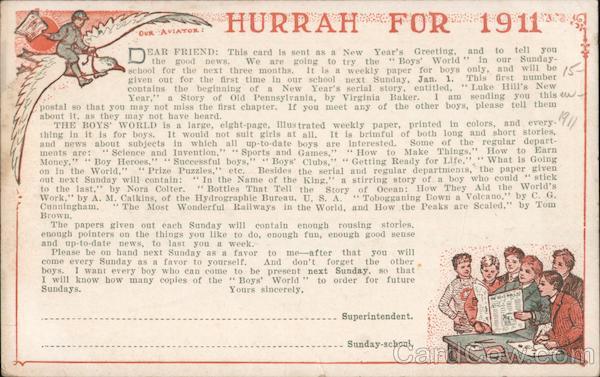 OUR AVIATOR:
HURRAH FOR 1911
DEAR FRIEND: This card is sent as a New Year's Greeting, and to tell you
the good news. We are going to try the "Boys' World" in our Sunday-
school for the next three months. It is a weekly paper for boys only, and will be
given out for the first time in our school next Sunday, Jan. 1. This first number
contains the beginning of a New Year's serial story, entitled, "Luke Hill's New
Year," a Story of Old Pennsylvania, by Virginia Baker. I am sending you this
postal so that you may not miss the first chapter. If you meet any of the other boys, please tell them
about it, as they may not have heard.
THE BOYS' WORLD is a large, eight-page, illustrated weekly paper, printed in colors, and every-
thing in it is for boys. It would not suit girls at all. It is brimful of both long and short stories,
and news about subjects in which all up-to-date boys are interested. Some of the regular depart-
ments are: "Science and Invention," "Sports and Games," "How to Make Things," "How to Earn
Money," "Boy Heroes," "Successful boys," "Boys' Clubs," "Getting Ready for Life," "What is Going
on in the World," "Prize Puzzles," etc. Besides the serial and regular departments, the paper given
out next Sunday will contain: "In the Name of the King," a stirring story of a boy who could "stick
to the last," by Nora Colter. "Bottles That Tell the Story of Ocean: How They Aid the World's
Work," by A. M. Calkins, of the Hydrographic Bureau, U. S. A. "Tobogganing Down a Volcano," by C. G.
Cunningham. "The Most Wonderful Railways in the World, and How the Peaks are Scaled," by Tom
Brown.
The papers given out each Sunday will contain enough rousing stories,
enough pointers on the things you like to do, enough fun, enough good sense
and up-to-date news, to last you a week.
Please be on hand next Sunday as a favor to me—after that you will
come every Sunday as a favor to yourself. And don't forget the other
boys. I want every boy who can come to be present next Sunday, so that
I will know how many copies of the "Boys' World" to order for future
Sundays. Yours sincerely,
Superintendent.
Sunday-school,
15
1911
CardCow.com